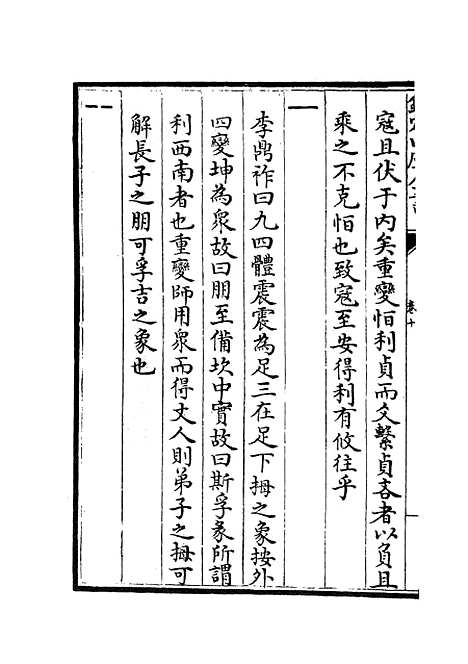 寇且伏于内矣重變恒利貞而爻繫貞吝者以負且
乘之不克恒也致寇至安得利有攸往乎
李鼎祚曰九四體震震為足三在足下拇之象按外
四變坤為眾故曰朋至備坎中實故曰斯孚彖所謂
利西南者也重變師用眾而得丈人則弟子之拇可
解長子之朋可孚吉之象也
卷十